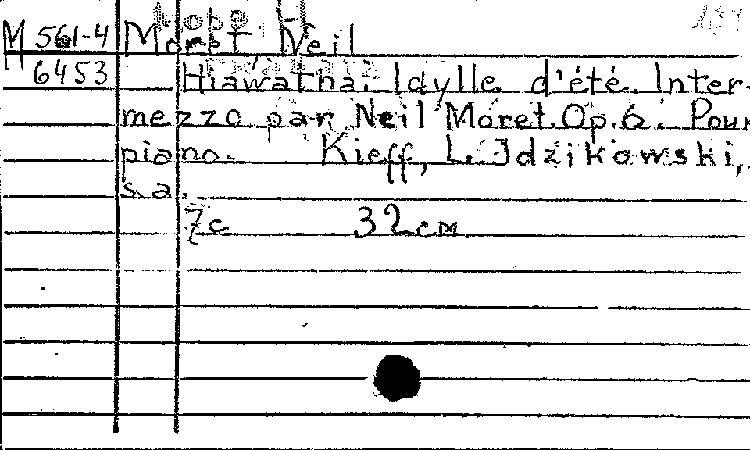 M 561-4 Moret, Neil
H 6453 Hiawatha. Idylle d'été. Inter-
mezzo par Neil Moret. Op. 6. Pour
piano. Kieff, L. Idzikowski,
s.a.
7с 32см